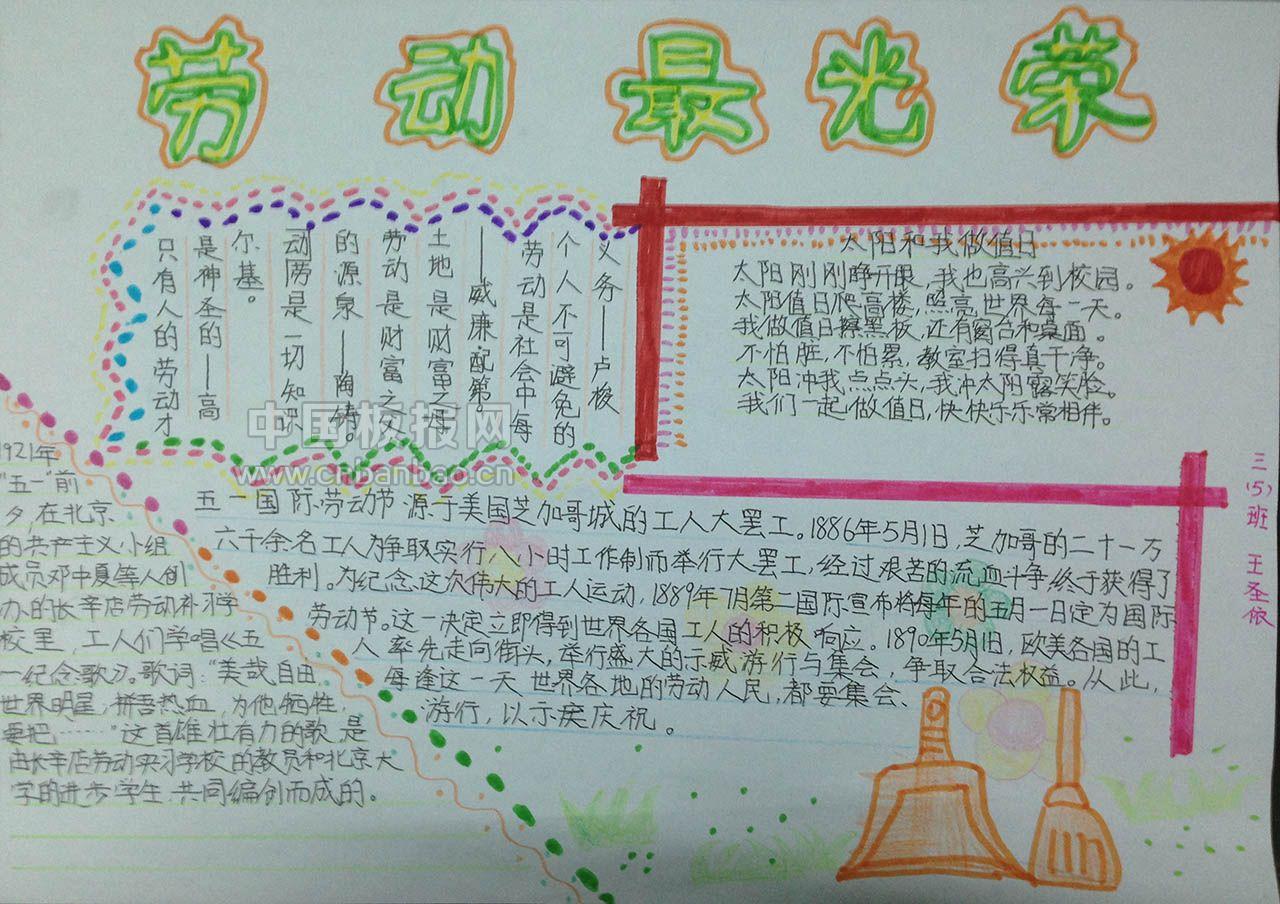 劳动最光荣
只有人的劳动才
是神圣的——高
尔基。
动劳是一切知识
的源泉——陶铸。
劳动是财富之父
土地是财富之母
——威廉配第。
劳动是社会中每
个人不可避免的
义务——卢梭
太阳和我做值日
太阳刚刚睁开眼,我也高兴到校园。
太阳值日爬高楼,照亮世界每一天。
我做值日擦黑板,还有窗台和桌面。
不怕脏,不怕累,教室扫得真干净。
太阳冲我点点头,我冲太阳露笑脸。
我们一起做值日,快快乐乐常相伴。
中国板报网
www.cnbanbao.cn
三(5)班 王圣依
五一国际劳动节源于美国芝加哥城的工人大罢工。1886年5月1日,芝加哥的二十一万
六千余名工人为争取实行八小时工作制而举行大罢工,经过艰苦的流血斗争终于获得了
胜利。为纪念这次伟大的工人运动,1889年7月第二国际宣布将每年的五月一日定为国际
劳动节。这一决定立即得到世界各国工人的积极响应。1890年5月1日,欧美各国的工
人率先走向街头,举行盛大的示威游行与集会,争取合法权益。从此,
每逢这一天世界各地的劳动人民,都要集会、
游行,以示庆祝。
1921年
"五一"前
夕,在北京
的共产主义小组
成员邓中夏等人创
办的长辛店劳动补习学
校里,工人们学唱《五
一纪念歌》。歌词:"美哉自由,
世界明星,拼吾热血,为他牺牲,
要把……"这首雄壮有力的歌是
由长辛店劳动实习学校的教员和北京大
学的进步学生共同编创而成的。